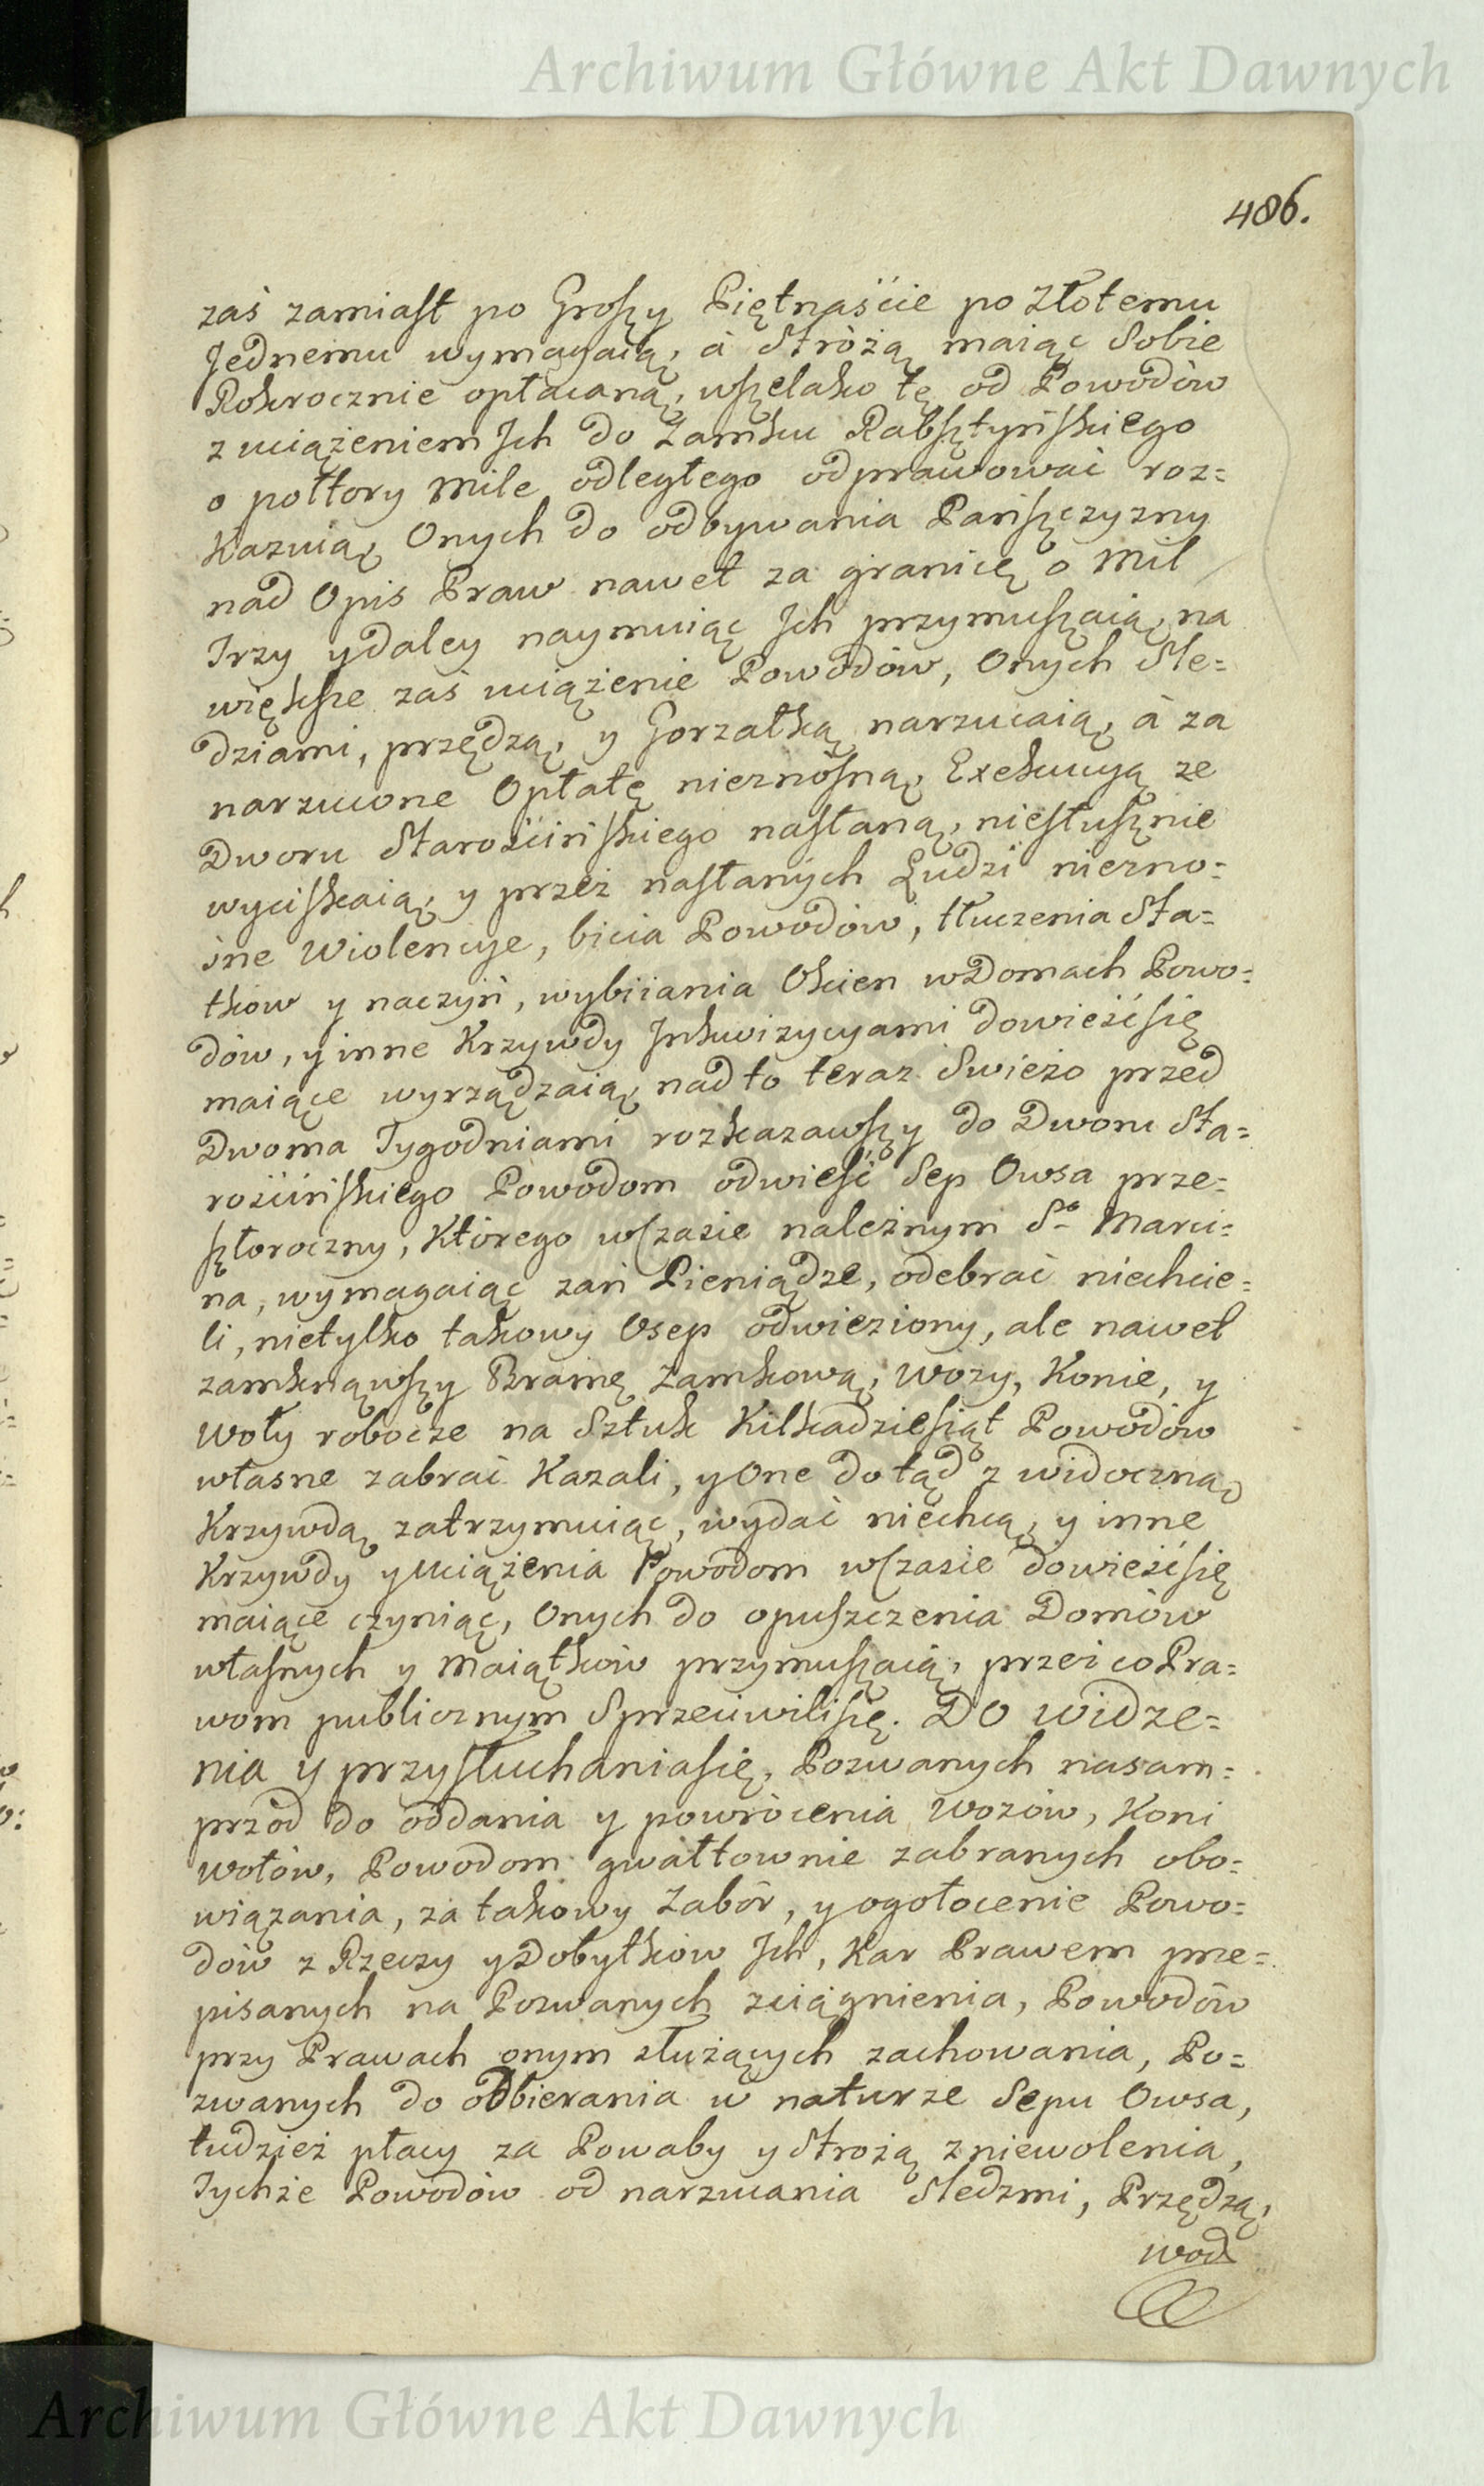 Archiwum Główne Akt Dawnych
486.
zaś zamiast po Groszy Piętnaście po złotemu
Jednemu wymagaią, á Stróżą maiąc Sobie
Rokrocznie opłacaną, wszelako tę od Powodów
z uciążeniem Ich do Zamku Rabsztyńskiego
o połtory mile odległego odprawować roz=
kazuią, Onych do odbywania Pańszczyzny
nad Opis Praw nawet za granicę o mil
Trzy y daley naymuiąc Ich przymuszaią, na
większe zaś uciążenie Powodów, Onych Sle=
dziami, przędzą, y Gorzałką narzucaią, á za
narzucone Opłatę nieznośną, Exekucyą ze
Dworu Starościńskiego nasłaną, niesłusznie
wyciskaią, y przez nasłanych Ludzi niezno=
śne Wiolencye, bicia Powodów, tłuczenia Sta=
tków y naczyń, wybiiania Okien w Domach Powo=
dów, y inne Krzywdy Inkwizycyami dowieść się
maiące wyrządzaią, nad to teraz Swieżo przed
Dwoma Tygodniami rozkazawszy do Dworu Sta=
rościńskiego Powodom odwieść Sep Owsa prze=
szłoroczny, Którego w czasie należnym So Marci=
na, wymagaiąc zań Pieniądze, odebrać niechcie=
li, nietylko takowy Osep odwieziony, ale nawet
zamknąwszy Bramę Zamkową, Wozy, Konie, y
Woły robocze na Sztuk Kilkadziesiąt Powodów
własne zabrać Kazali, y One do tąd z widoczną
Krzywdą zatrzymuiąc, wydać niechcą, y inne
Krzywdy y Uciążenia Powodom w czasie dowieść się
maiące czyniąc, Onych do opuszczenia Domów
własnych y maiątków przymuszaią, przez co Pra=
wom publicznym Sprzeciwili się. Do widze=
nia y przysłuchania się, Pozwanych nasam=
przód do oddania y powrócenia Wozów, Koni
Wołów, Powodom gwałtownie zabranych obo=
wiązania, za takowy Zabór, y ogołocenie Powo=
dów z Rzeczy y Dobytków Ich, Kar Prawem prze=
pisanych na Pozwanych zciągnienia, Powodów
przy Prawach onym służących zachowania, Po=
zwanych do odbierania w naturze Sepu Owsa,
tudzież płacy za Powaby y Strożą zniewolenia,
Tychże Powodów od narzucania Sledzmi, Przędzą,
wod
Archiwum Główne Akt Dawnych